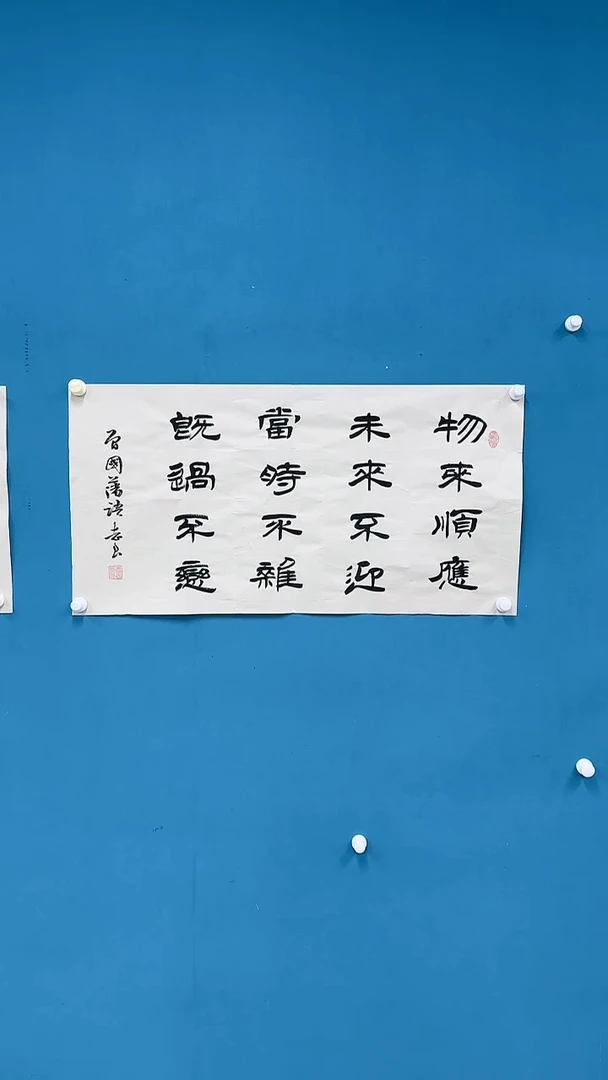 物來順應
未來不迎
當時不雜
既過不戀
曾國藩語志書